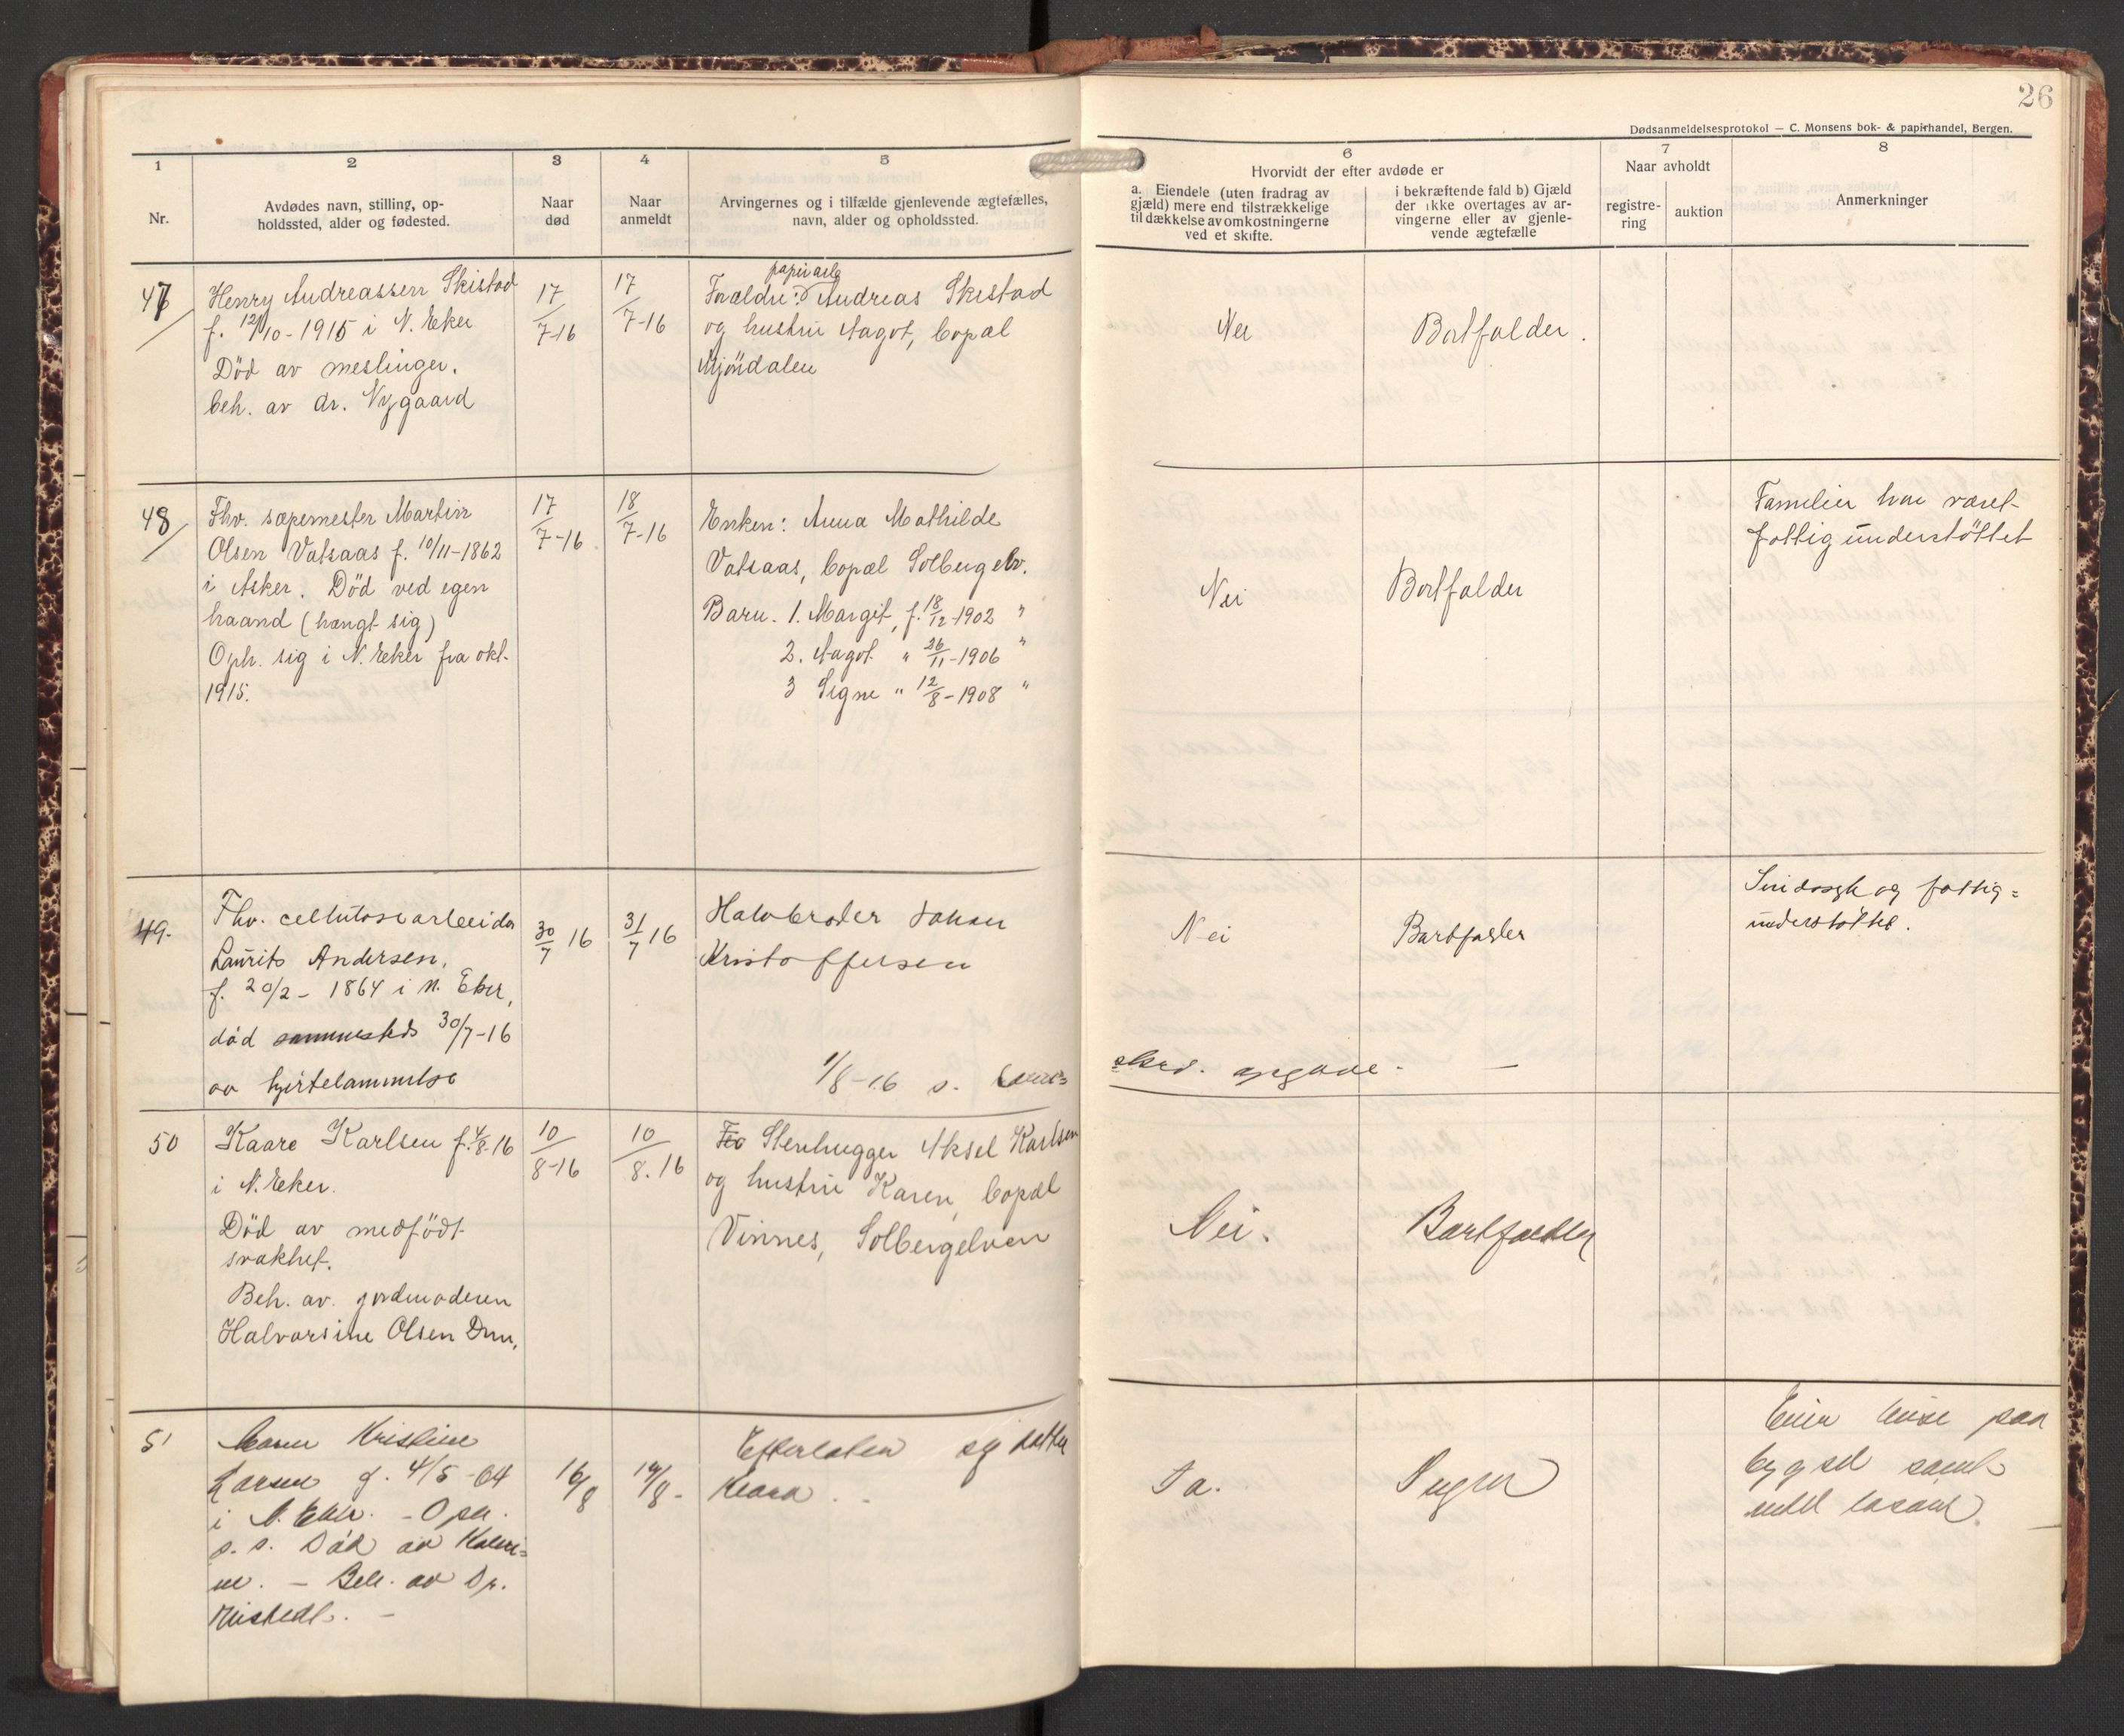 26
Dødsanmeldelsesprotokol — C. Monsens bok- & papirhandel, Bergen.
1
Nr.
2
Avdødes navn, stilling, op-
holdssted, alder og fødested.
3
Naar
død
4
Naar
anmeldt
5
Arvingernes og i tilfælde gjenlevende ægtefælles,
navn, alder og opholdssted.
6
Hvorvidt der efter avdøde er
a. Eiendele (uten fradrag av
gjæld) mere end tilstrækkelige
til dækkelse av omkostningerne
ved et skifte.
i bekræftende fald b) Gjæld
der ikke overtages av ar-
vingerne eller av gjenle-
vende ægtefælle
7
Naar avholdt
registre-
ring
auktion
8
Anmerkninger
47
Henry Andreassen Skistad
f. 12/10-1915 i N. Eker
Död av meslinger.
beh. av dr. Nygaard
17/7-16
17/7-16
papirarb
Forældre: Andreas Skistad
og hustru Aagot, bopæl
Mjöndalen
Nei
Bortfalder.
48
Fhv. sæpemester Martin
Olsen Vatsaas f. 10/11-1862
i Asker. Död ved egen
haand (hængt sig)
Oph. sig i N. Eker fra okt.
1915.
17/7-16
18/7-16
Enken: Anna Mathilde
Vatsaas, bopæl Solbergelv.
Barn. 1. Margit, f. 18/12-1902 "
2. Aagot " 26/11-1906 "
3 Signe " 12/8-1908 "
Nei
Bortfalder
Familien har været
fattigunderstöttet
49.
Fhv. cellulosearbeider
Laurits Andersen,
f. 20/2- 1864 i N. Eker,
död sammesteds 30/7-16
av hjertelammelse
30/7 16
31/7 16
Halvbroder Johan
Kristoffersen
1/8-16 s.
opgave. —
Nei
Bortfalder
Sindssyk og fattig=
understöttet.
50
Kaare Karlsen f. 4/8-16
i N. Eker.
Död av medfödt
svakhet.
Beh. av jordmoderen
Halvarsine Olsen Drm.
10/8-16
10/8.16
Stenhugger Aksel Karlsen
og hustru Karen, bopæl
Vinnes, Solbergelven
Nei.
Bortfalder
51
Karen Kristine
Larsen f. 4/5-64
i N. Eker. - Oph.
s. s. Död av
— Beh. av Dr.
16/8
17/8-
Efterlater sig datter
Klara . -
Ja.
Ingen
Eier huse paa
bygsel samt
endel løsøre.